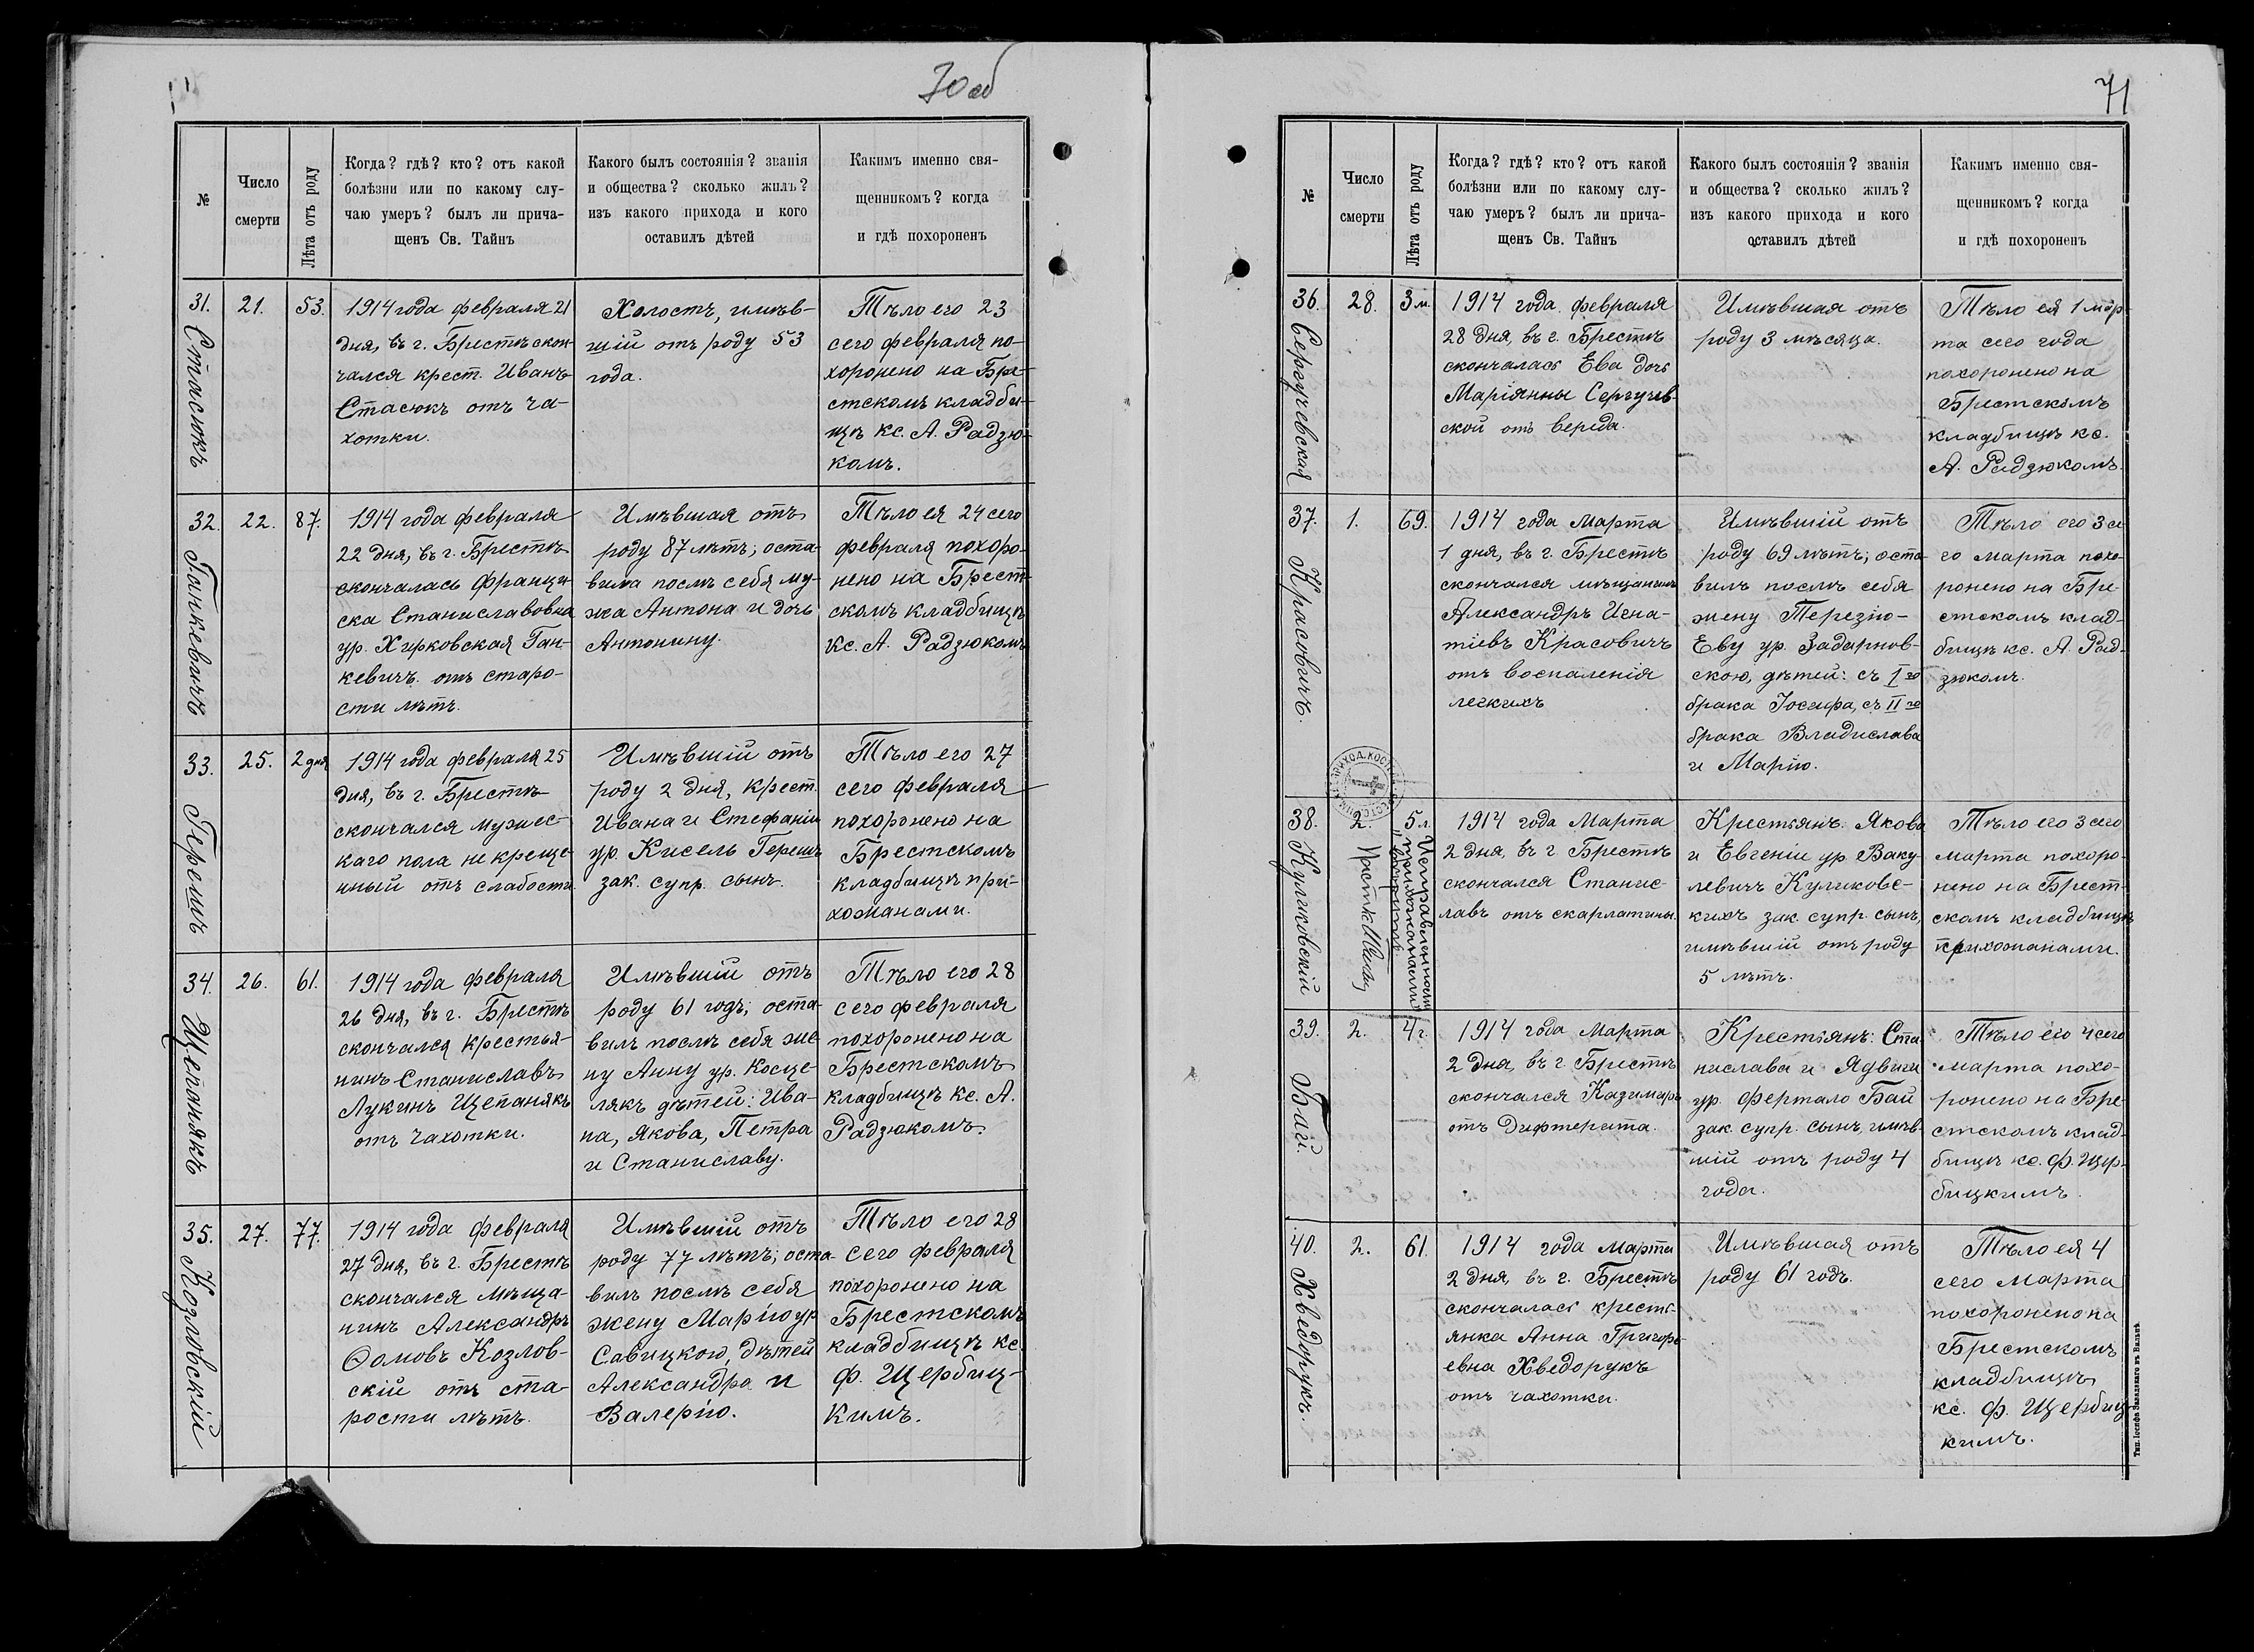 70 об
№
Число
смерти
Лѣта отъ роду
Когда? гдѣ? кто? отъ какой
болѣзни или по какому слу-
чаю умеръ? былъ ли прича-
щенъ Св. Тайнъ
Какого былъ состоянія? званія
и общества? сколько жилъ?
изъ какого прихода и кого
оставилъ дѣтей
Какимъ именно свя-
щенникомъ? когда
и гдѣ похороненъ
31.
Стасюкъ
21.
53.
1914 года февраля 21
дня, въ г. Брестѣ скон-
чался крест. Иванъ
Стасюкъ отъ ча-
хотки.
Холостъ, имѣв-
шій отъ роду 53
года.
Тѣло его 23
сего февраля по-
хоронено на Бре-
стскомъ кладби-
щѣ кс. А. Радзю-
комъ.
32.
Ганкевичъ
22.
87.
1914 года февраля
22 дня, въ г. Брестѣ
скончалась Францы-
ска Станиславовна
ур. Хирковская Ган-
кевичъ отъ старо-
сти лѣтъ.
Имѣвшая отъ
роду 87 лѣтъ; оста-
вила послѣ себя му-
жа Антона и дочь
Антонину.
Тѣло ея 24 сего
февраля похоро-
нено на Брест-
скомъ кладбищѣ
кс. А. Радзюкомъ
33.
Герешъ
25.
2 дня
1914 года февраля 25
дня, въ г. Брестѣ
скончался мужес-
каго пола не креще-
нный отъ слабости.
Имѣвшій отъ
роду 2 дня, крест.
Ивана и Стефаніи
ур. Кисель Герешъ
зак. супр. сынъ.
Тѣло его 27
сего февраля
похоронено на
Брестскомъ
кладбищѣ при-
хожанами.
34.
Щепонякъ
26.
61.
1914 года февраля
26 дня, въ г. Брестѣ
скончался крестья-
нинъ Станиславъ
Лукинъ Щепанякъ
отъ чахотки.
Имѣвшій отъ
роду 61 годъ; оста-
вилъ послѣ себя же-
ну Анну ур. Косце-
лякъ дѣтей: Ива-
на, Якова, Петра
и Станиславу.
Тѣло его 28
сего февраля
похоронено на
Брестскомъ
кладбищѣ кс. А.
Радзюкомъ.
35.
Козловскій
27.
77.
1914 года февраля
27 дня, въ г. Брестѣ
скончался мѣща-
нинъ Александръ
Ѳомовъ Козлов-
скій отъ ста-
рости лѣтъ.
Имѣвшій отъ
роду 77 лѣтъ; оста-
вилъ послѣ себя
жену Марію ур.
Савицкою, дѣтей
Александра и
Валерію.
Тѣло его 28
сего февраля
похоронено на
Брестскомъ
кладбищѣ кс.
Ф. Щербиц-
кимъ.
71
№
Число
смерти
Лѣта отъ роду
Когда? гдѣ? кто? отъ какой
болѣзни или по какому слу-
чаю умеръ? былъ ли прича-
щенъ Св. Тайнъ
Какого былъ состоянія? званія
и общества? сколько жилъ?
изъ какого прихода и кого
оставилъ дѣтей
Какимъ именно свя-
щенникомъ? когда
и гдѣ похороненъ
36.
Сергучевская
28.
3 м.
1914 года февраля
28 дня, въ г. Брестѣ
скончалась Ева дочь
Маріянны Сергучев-
ской отъ вереда.
Имѣвшая отъ
роду 3 мѣсяца.
Тѣло ея 1 мар-
та сего года
похоронено на
Брестскомъ
кладбищѣ кс.
А. Радзюкомъ.
37.
Красовичъ.
1.
69.
1914 года Марта
1 дня, въ г. Брестѣ
скончался мѣщанинъ
Александръ Игна-
тіевъ Красовичъ
отъ воспаленія
легкихъ
Имѣвшій отъ
роду 69 лѣтъ; оста-
вилъ послѣ себя
жену Терезію-
Еву ур. Задарнов-
скою, дѣтей: съ I го
брака Іосифа, съ II го
брака Владислава
и Марію.
Тѣло его 3 се-
го марта похо-
ронено на Бре-
стскомъ клад-
бищѣ кс. А. Рад-
зюкомъ.
38.
Куликовскій
2.
5 л.
Исправленному
"прихожанами"
вѣрить
1914 года Марта
2 дня, въ г. Брестѣ
скончался Станис-
лавъ отъ скарлатины.
Крестьянъ: Якова
и Евгеніи ур. Ваку-
левичъ Куликовс-
кихъ зак. супр. сынъ,
имѣвшій отъ роду
5 лѣтъ.
Тѣло его 3 сего
марта похоро-
нено на Брест-
скомъ кладбищѣ
прихожанами.
39.
Бай.
2.
4 г.
1914 года Марта
2 дня, въ г. Брестѣ
скончался Казимиръ
отъ дифтерита.
Крестьянъ: Ста-
нислава и Ядвиги
ур. Фертало Бай
зак. супр. сынъ, имѣв-
шій отъ роду 4
года.
Тѣло его 4 сего
марта похо-
ронено на Бре-
стскомъ клад-
бищѣ кс. Ф. Щер-
бицкимъ.
40.
Хведорукъ.
2.
61.
1914 года Марта
2 дня, въ г. Брестѣ
скончалась кресть-
янка Анна Григорь-
евна Хведорукъ
отъ чахотки.
Имѣвшая отъ
роду 61 годъ.
Тѣло ея 4
сего Марта
похоронено на
Брестскомъ
кладбищѣ
кс. Ф. Щербиц-
кимъ.
Тип. Іосифа Завадзкаго въ Вильнѣ.